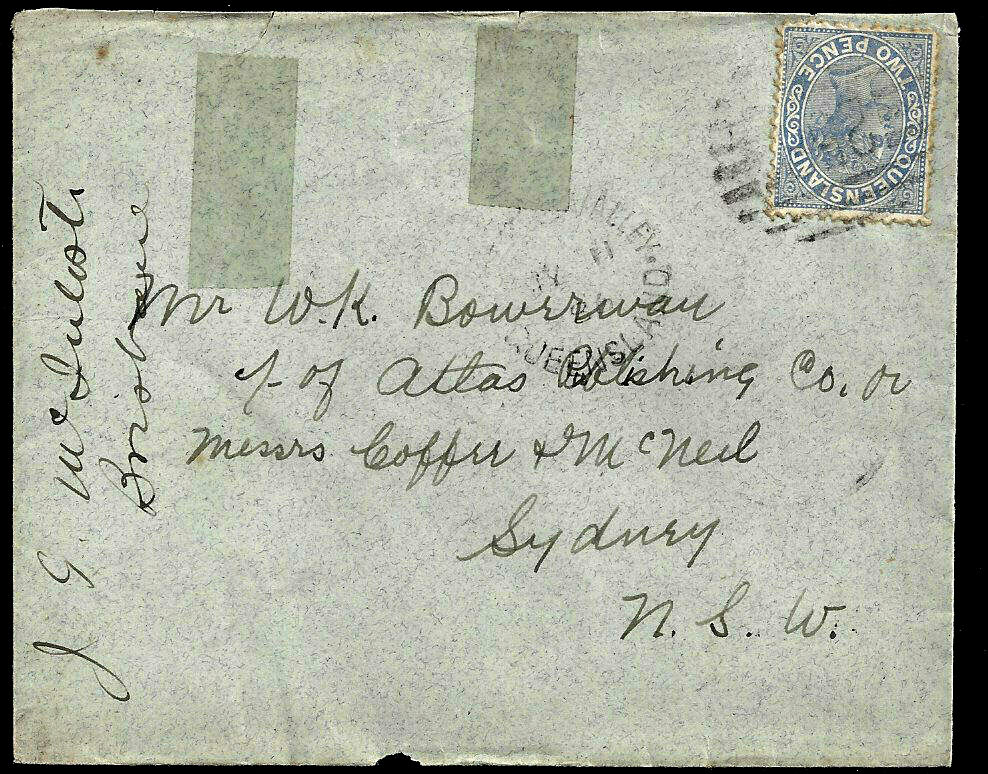 TWO PENCE
QUEENSLAND
VALLEY
QUEENSLAND
Mr W.K. Bowerman
c/- of Atlas Polishing Co. or
Messrs Coffee & McNeil
Sydney
N. S. W.
J G
Brisbane